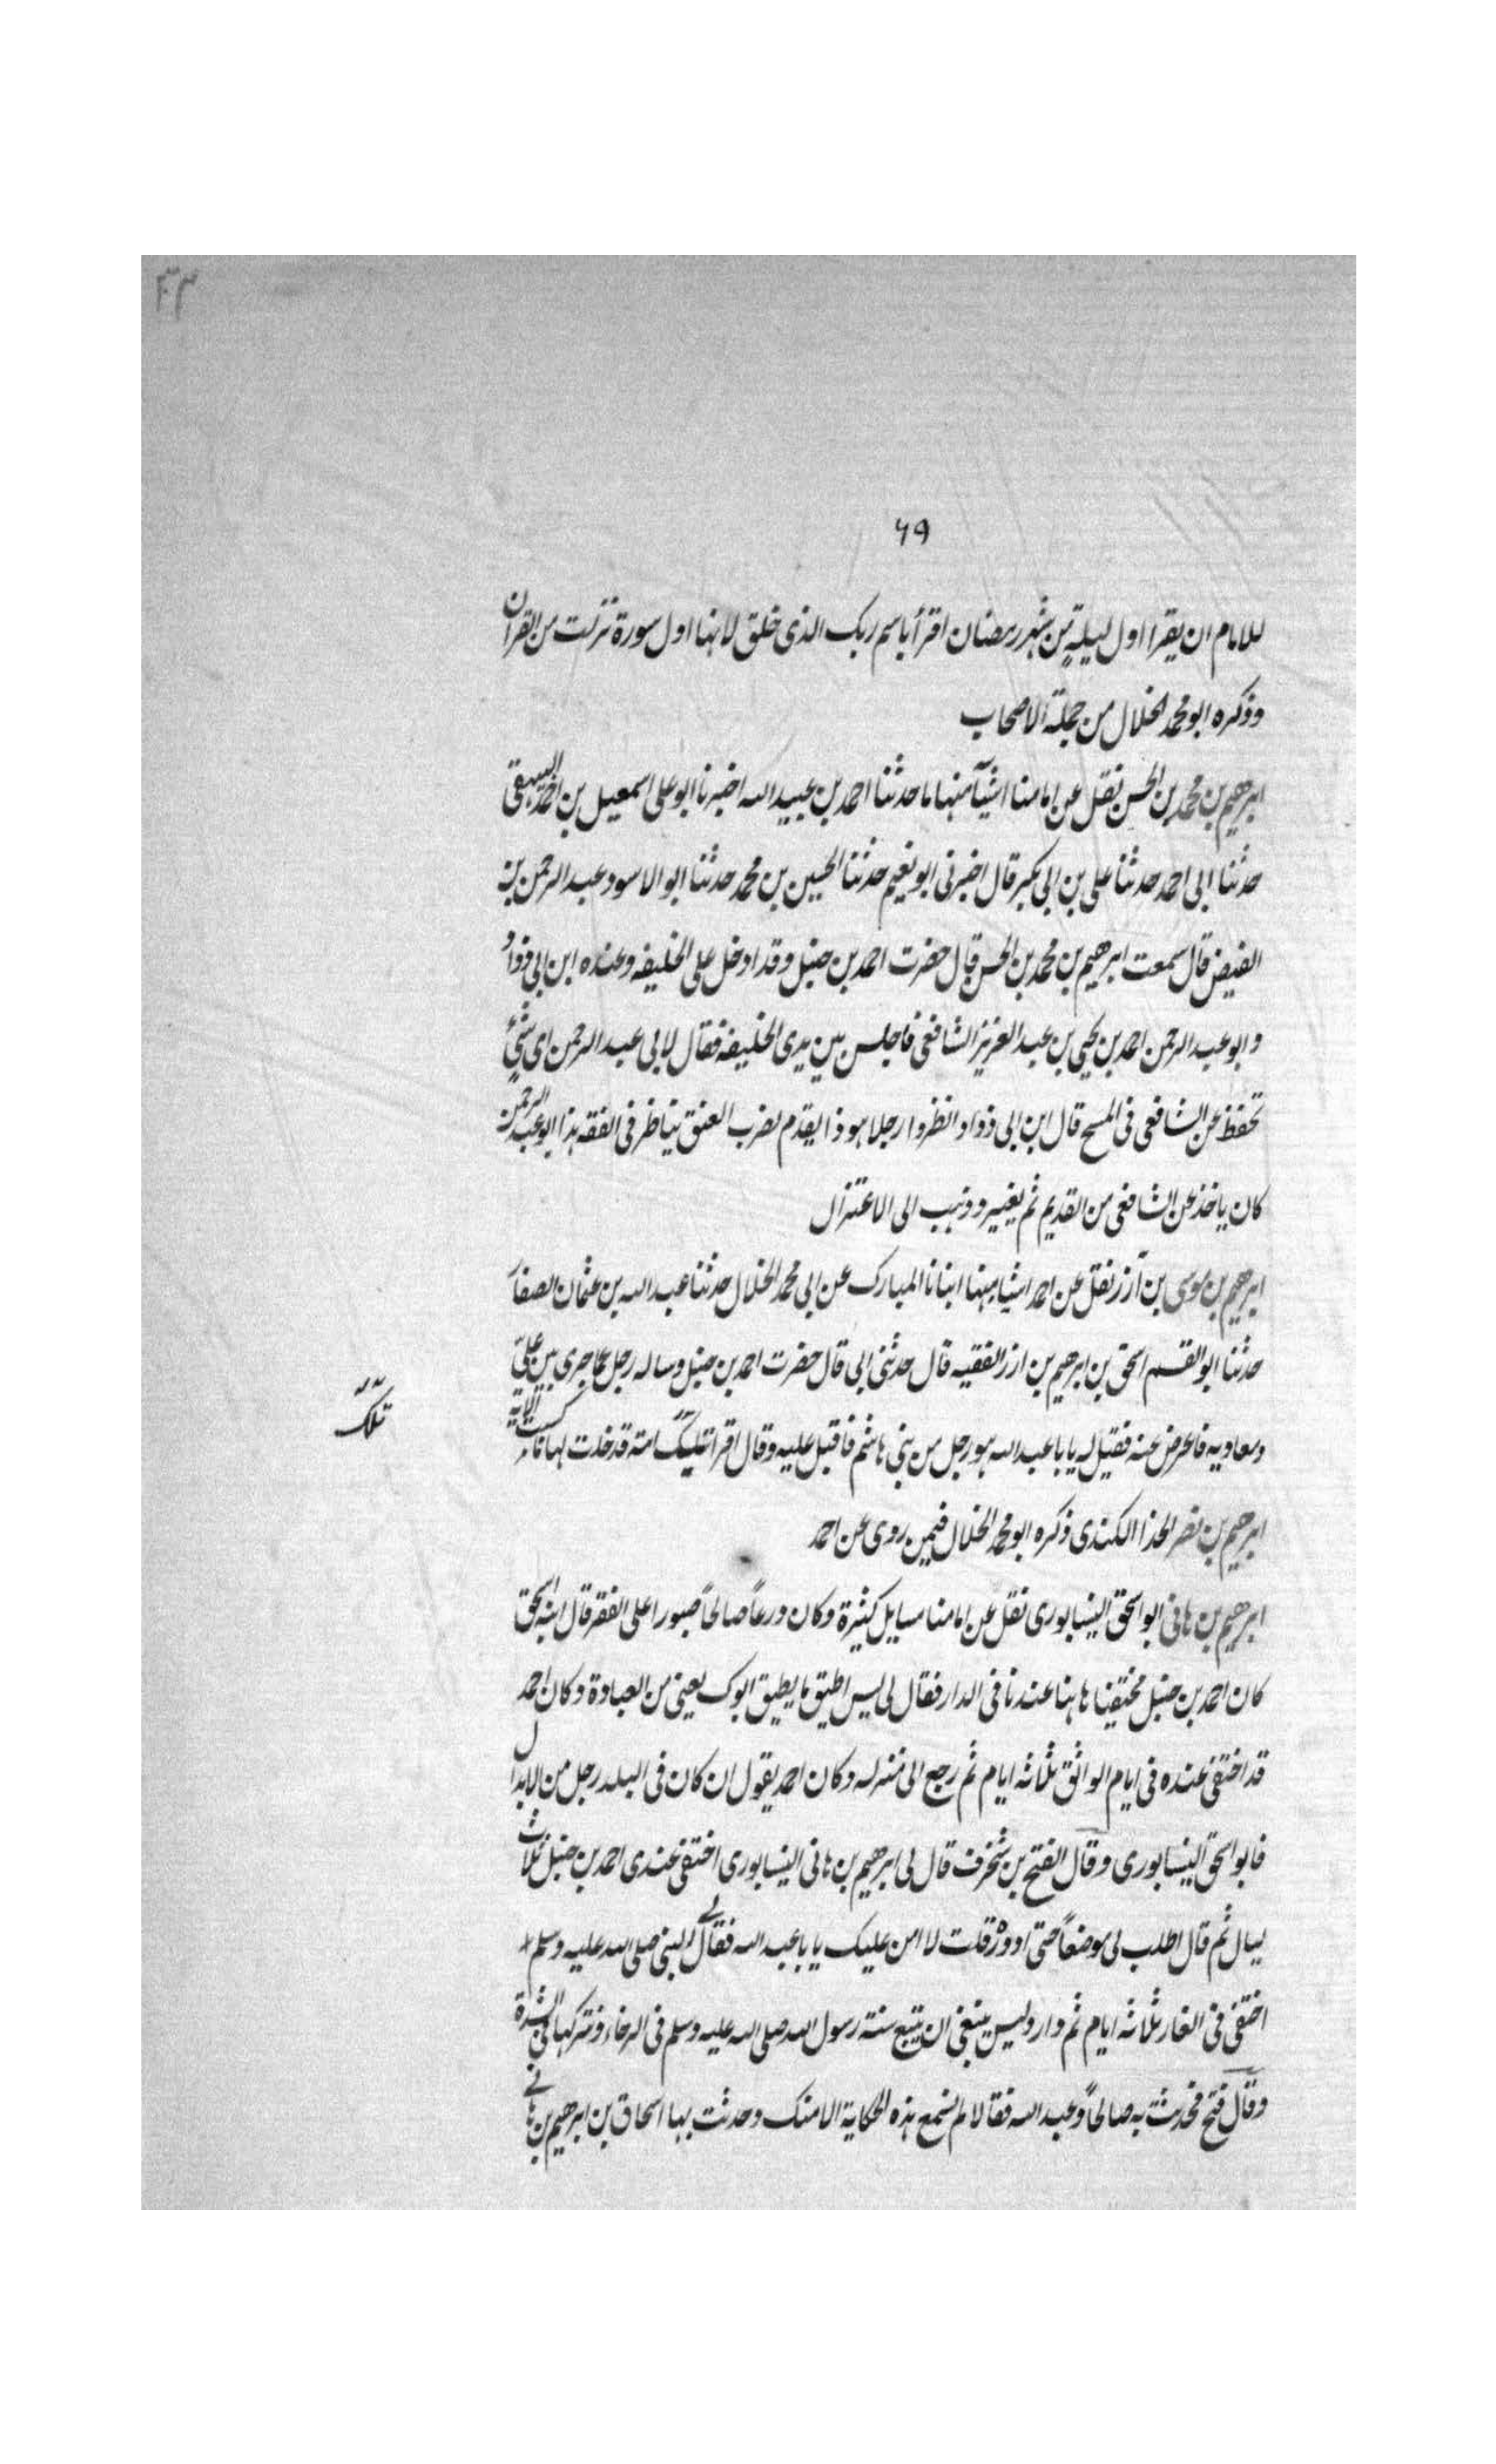 ٣٣
٦٩
للامام ان يقرا اول ليلة من شهر رمضان اقرأ باسم ربك الذى خلق لانها اول سورة نزلت من القران
وذكره ابو محمد الخلال من جملة الاصحاب
ابرهيم بن محمد بن الحسن نقل عن امامنا اشيآ منها ما حدثنا احمد بن عبيد الله اخبرنا ابو على اسمعيل بن احمد البيهقى
حدثنا ابى احمد حدثنا على بن ابى بكير قال اخبرنى ابو نعيم حدثنا الحسين بن محمد حدثنا ابو الاسود عبد الرحمن بن
الفيض قال سمعت ابرهيم بن محمد بن الحسن قال حضرت احمد بن حنبل وقد ادخل على الخليفه وعنده ابن ابى دواد
و ابو عبد الرحمن احمد بن يحيى بن عبد العزيز الشافعى فاجلس بين يدى الخليفه فقال لابى عبد الرحمن اى شئ
تحفظ عن الشافعى فى المسح قال ابن ابى دواد انظروا رجلا هو ذا يقدم لضرب العنق يناظر فى الفقه هذا ابو عبد الرحمن
كان ياخذ عن الشافعى من القديم ثم يغيير وذهب الى الاعتزال
ابرهيم بن موسى بن آزر نقل عن احمد اشيا منها انبانا المبارك عن ابى محمد الخلال حدثنا عبد الله بن عثمان الصفار
حدثنا ابو القسم اسحق بن ابرهيم بن ازر الفقيه قال حدثنى ابى قال حضرت احمد بن حنبل وساله رجل عما جرى بين على
ومعاويه فاعرض عنه فقيل له يا با عبد الله هو رجل من بنى هاشم فاقبل عليه وقال اقرا تلك امة قد خلت لها ما كسبت الاية
تلك
ابرهيم بن نصر الحذا الكندى ذكره ابو محمد الخلال فيمن روى عن احمد
ابرهيم بن هانى ابو اسحق النيسابورى نقل عن امامنا مسايل كثيرة وكان ورعاً صالحاً صبورا على الفقر قال ابنه اسحق
كان احمد بن حنبل مختفيا هاهنا عندنا فى الدار فقال لى ليس اطيق ما يطيق ابوك يعنى من العبادة وكان احمد
قد اختفى عنده فى ايام الواثق ثلاثه ايام ثم رجع الى منزله وكان احمد يقول ان كان فى البلد رجل من الابدال
فابو اسحق النيسابورى وقال الفتح بن شخرف قال لى ابرهيم بن هانى النيسابورى اختفى عندى احمد بن حنبل ثلاث
ليال ثم قال اطلب لى موضعاً حتى ادور قلت لا امن عليك يا با عبد الله فقال لى النبى صلى الله عليه وسلم
اختفى فى الغار ثلاثه ايام ثم دار وليس ينبغى ان يتبع سنة رسول الله صلى الله عليه وسلم فى الرخاء وتتركها فى الشدة
وقال فتح فحدثت به صالحاً وعبد الله فقالا لم نسمع هذه الحكاية الا منك وحدثت بها اسحاق بن ابرهيم بن هانى